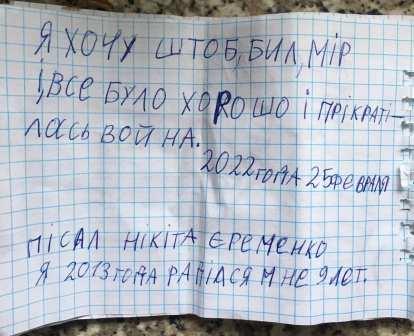 Я ХОЧУ ШТОБ, БИЛ, МІР
І, ВСЕ БУЛО ХОРОШО І ПРІКРАТІ-
ЛАСЬ ВОЙНА.
2022 ГОДА 25 ФЕВРАЛЯ
ПІСАЛ НІКІТА ЄРЕМЕНКО
Я 2013 ГОДА РАДІЛСЯ МНЕ 9 ЛЕТ.